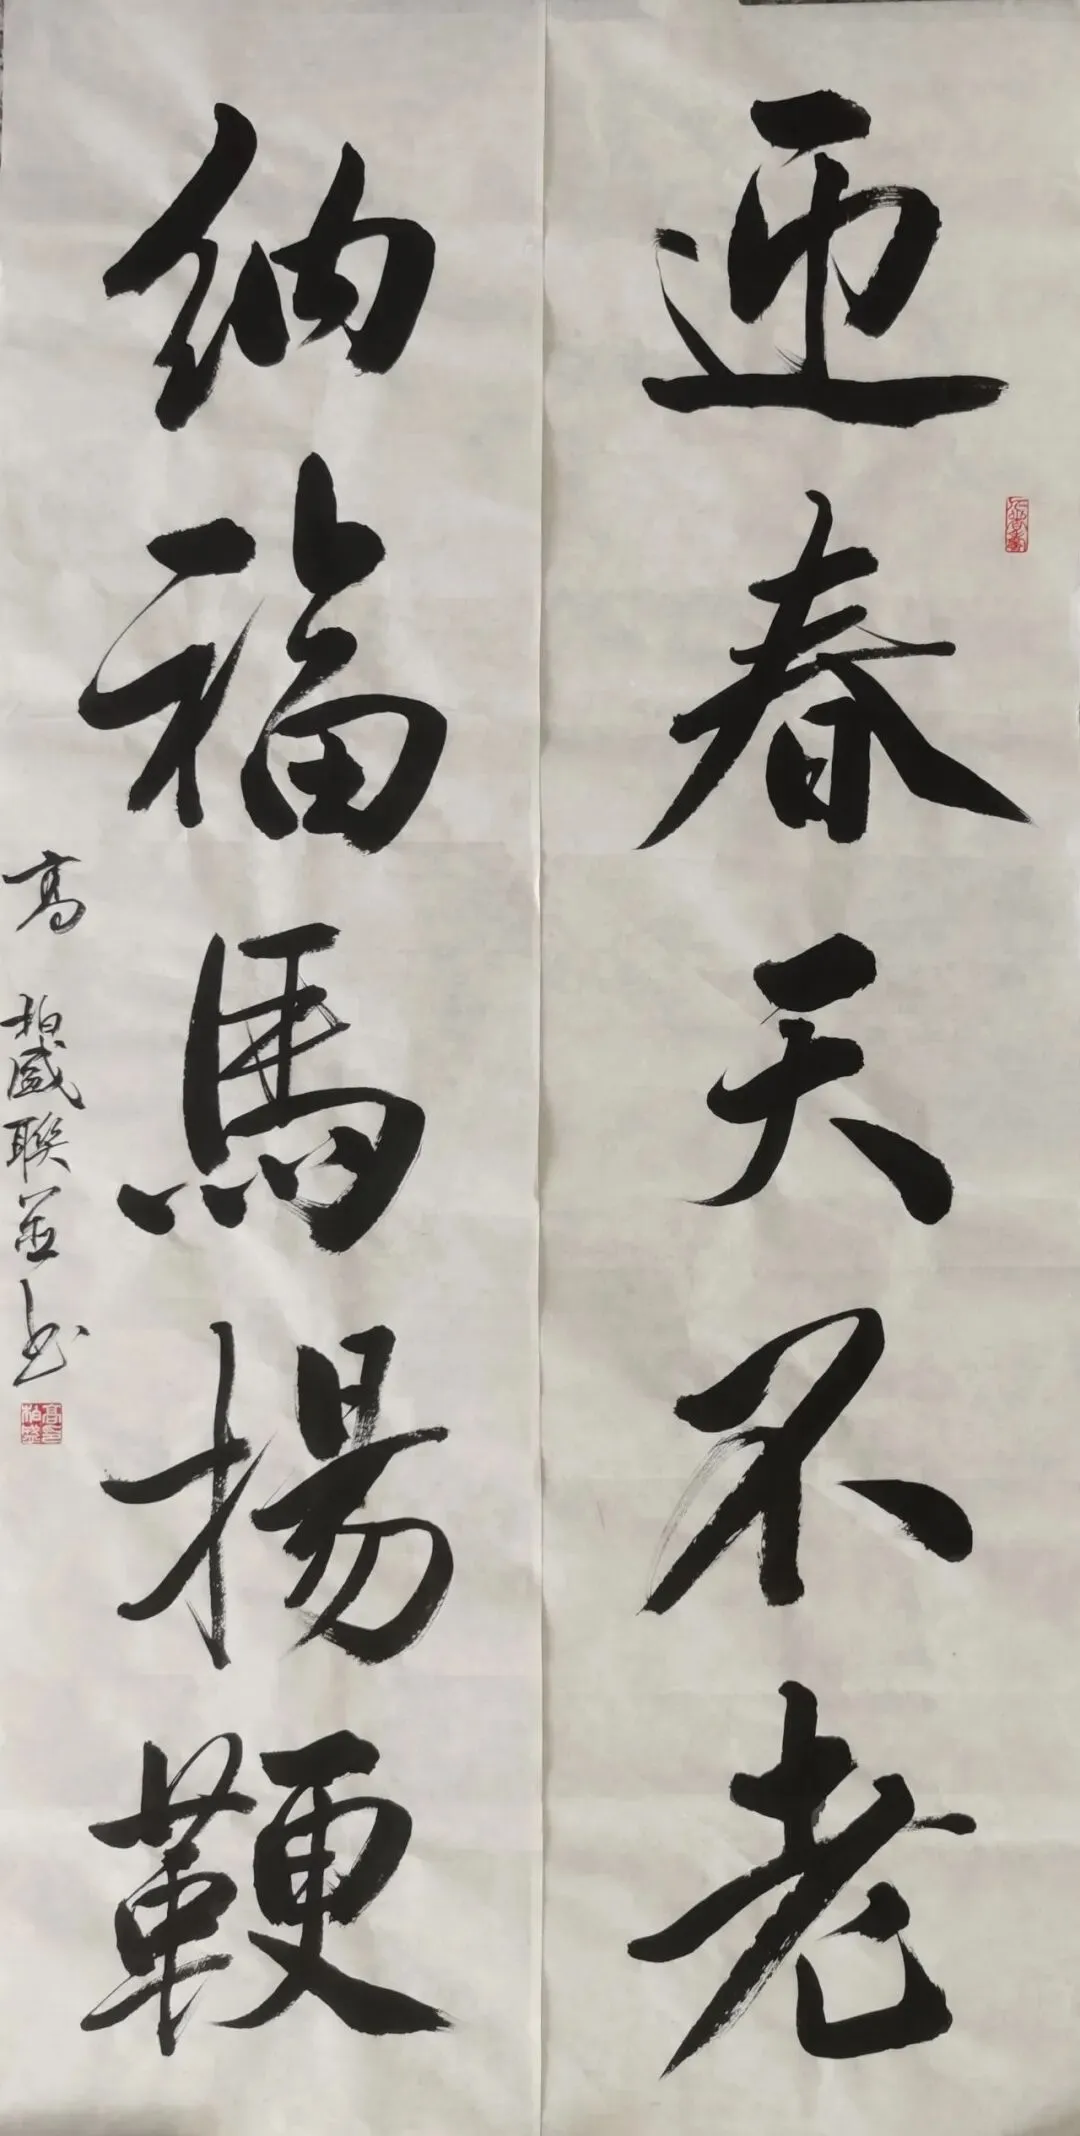 迎春天不老
納福馬揚鞭
高 柏盛聯並书
高柏盛印